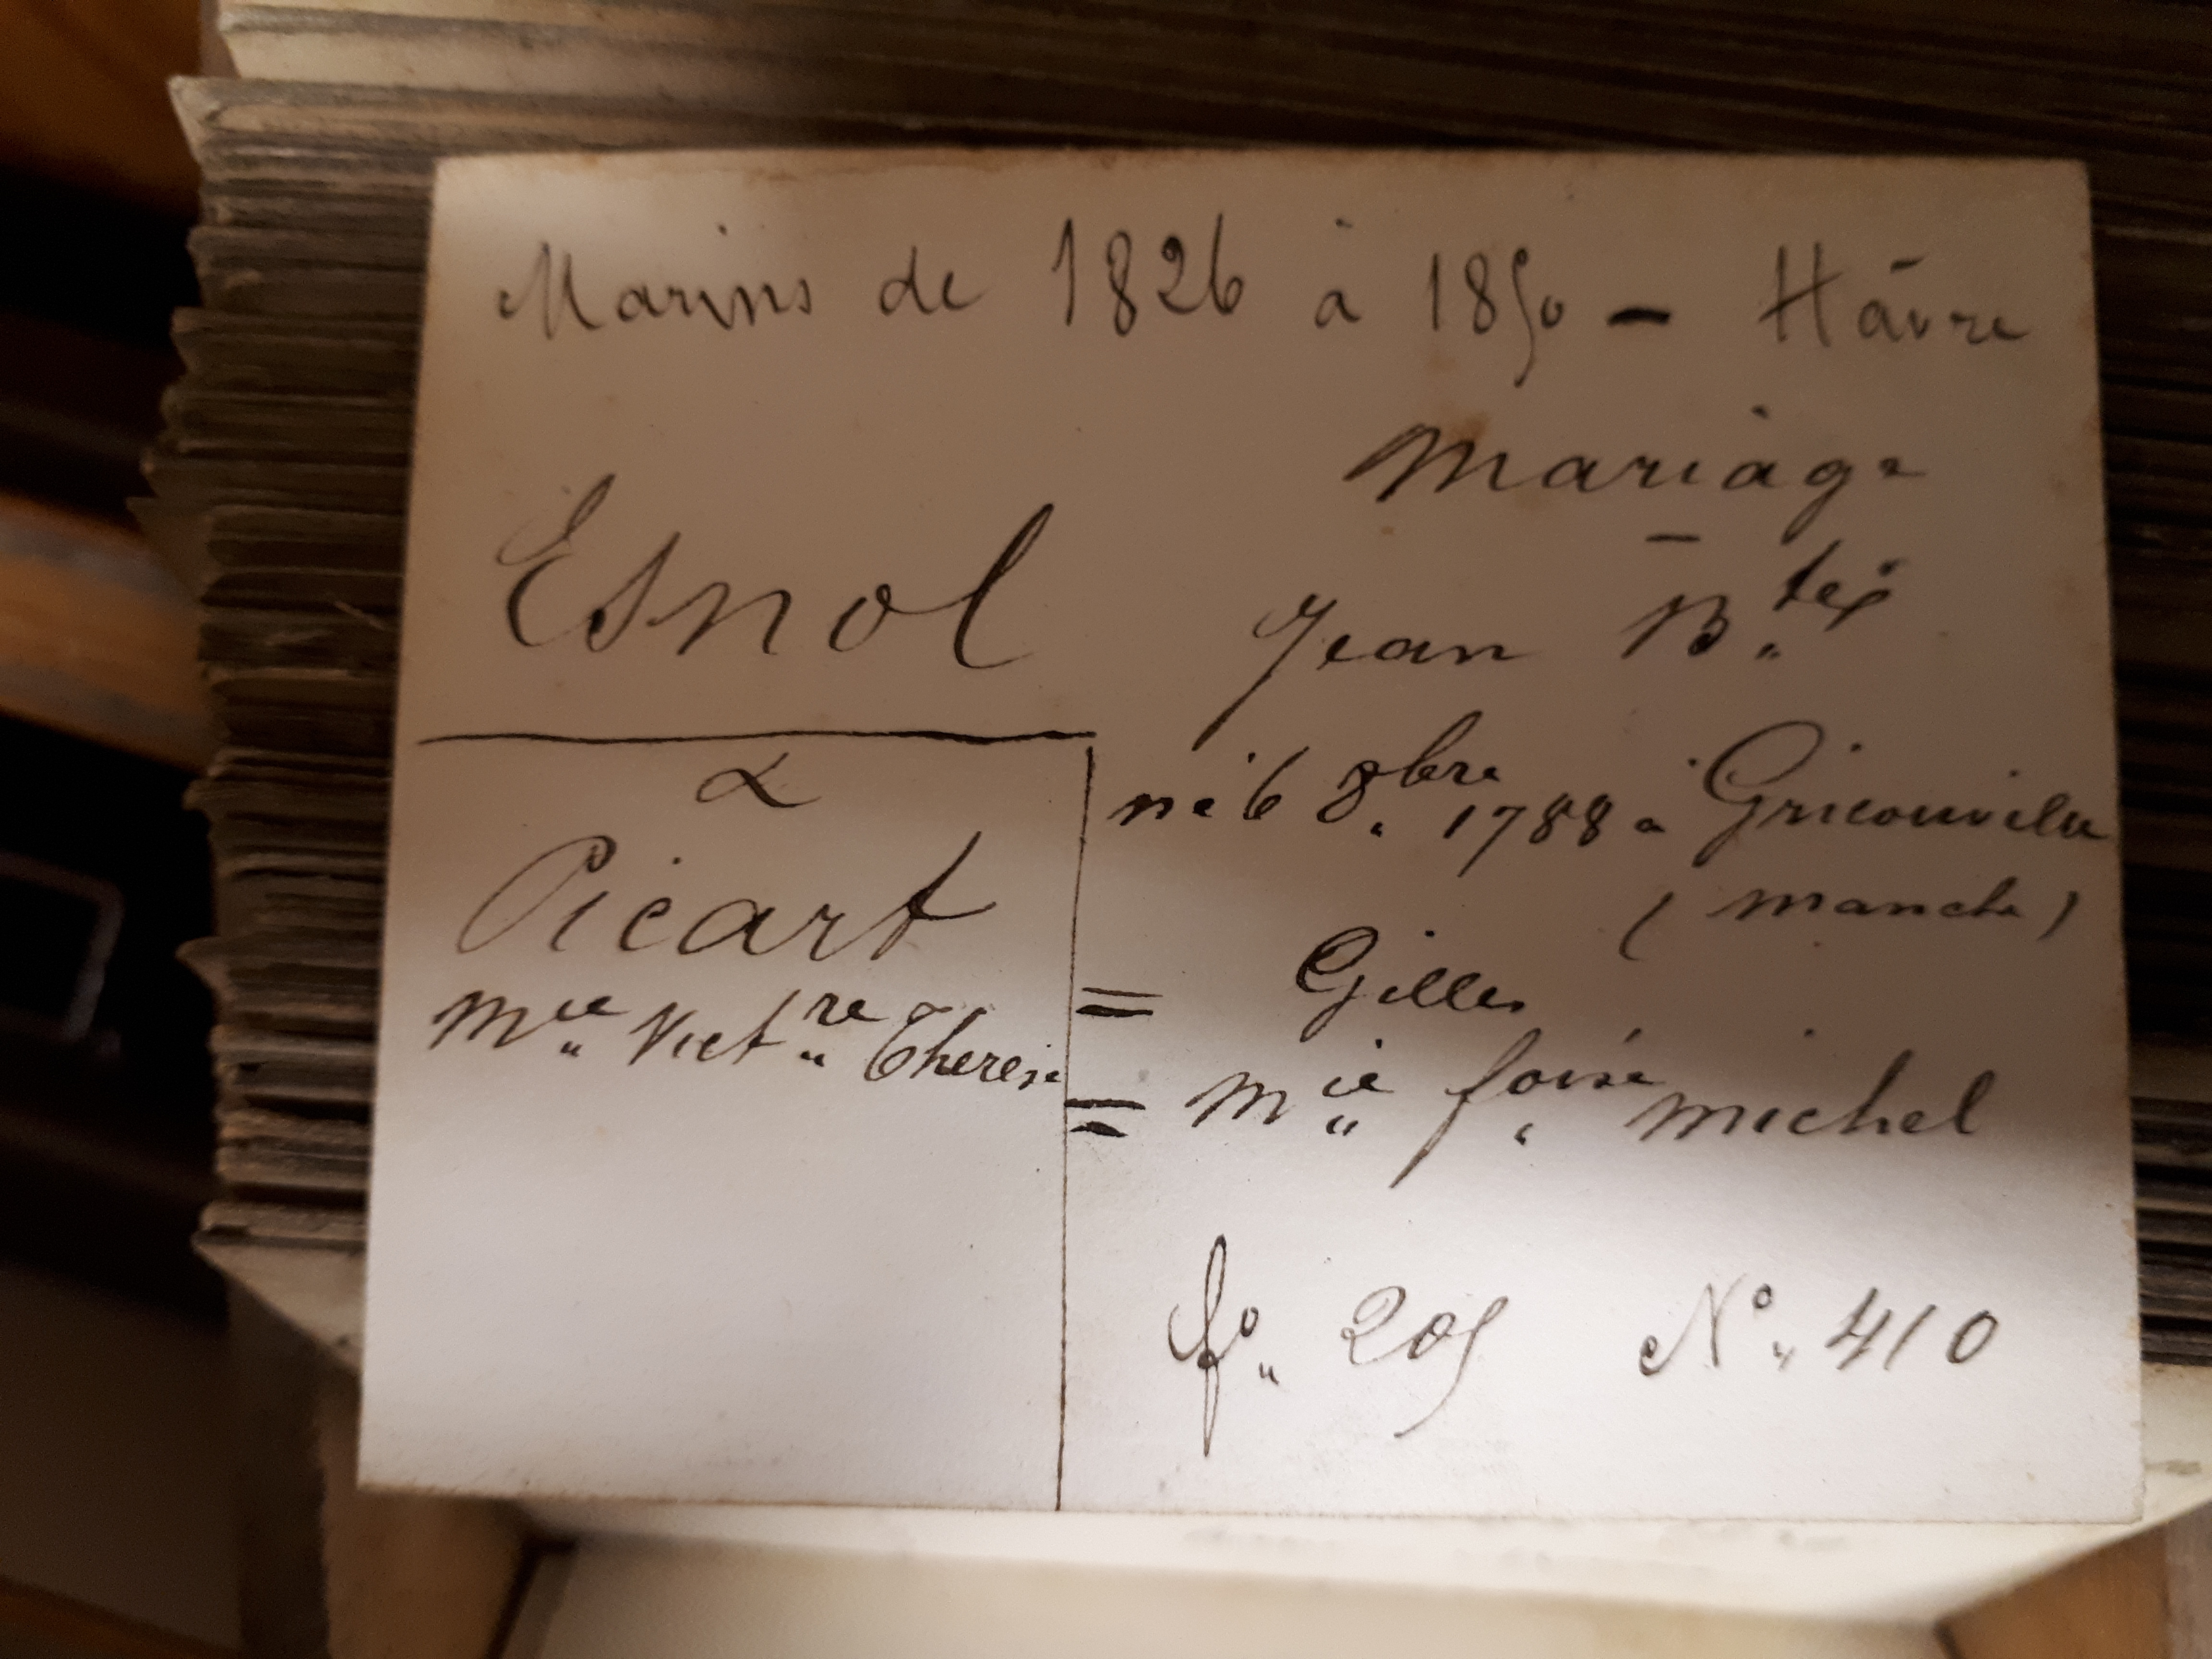 Marins de 1826 à 1850 - Hâvre
Mariage
Esnol
Jean B.te
né 6 8.bre 1788 à Gricouville
(manche)
&
Picart
Mie Vict.re Therese
= Gilles
= Mie foise michel
fo 205 No 410